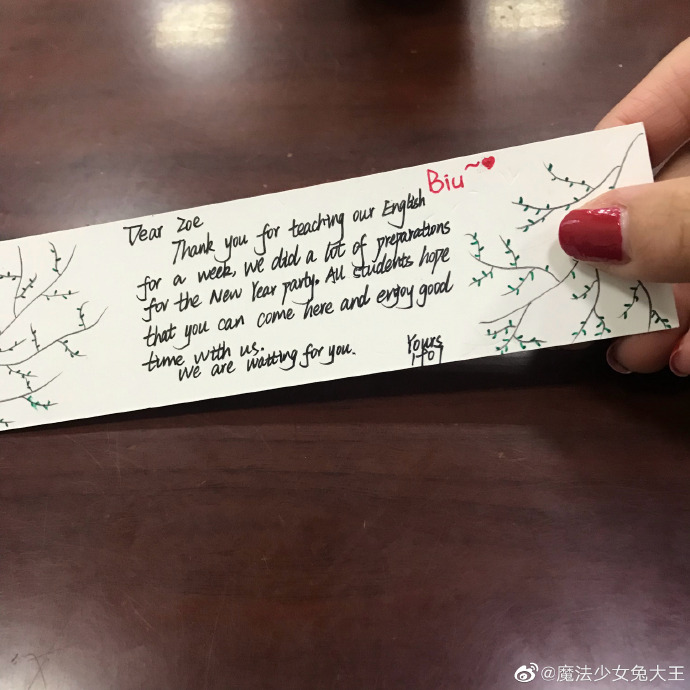 Biu~
Dear Zoe
Thank you for teaching our English
for a week, we did a lot of preparations
for the New Year party. All students hope
that you can come here and enjoy good
time with us.
We are waiting for you.
Yours
1-07
@魔法少女兔大王